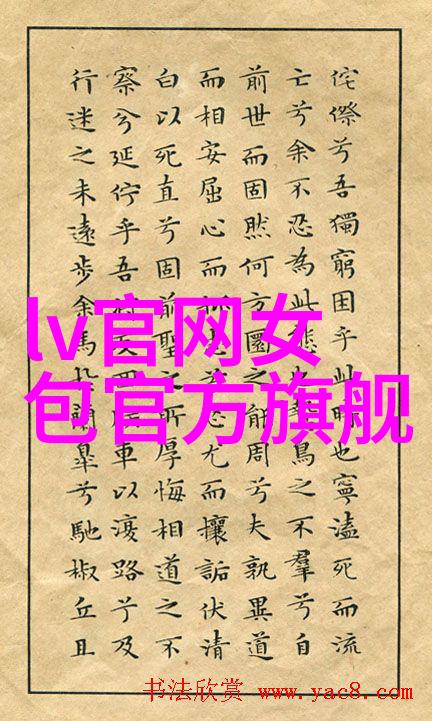 侘傺兮吾獨窮困乎此時也寧溘死而流
亡兮余不忍為此態鳥之不羣兮自
前世而固然何方圜之能周兮夫孰異道
而相安屈心而尤而攘詬伏清
白以死直兮固前聖之所厚悔相道之不
察兮延佇乎吾車以復路兮及
行迷之未遠步余馬蘭皋兮馳椒丘且
lv官网女
包官方旗舰
书法欣赏 www.yac8.com